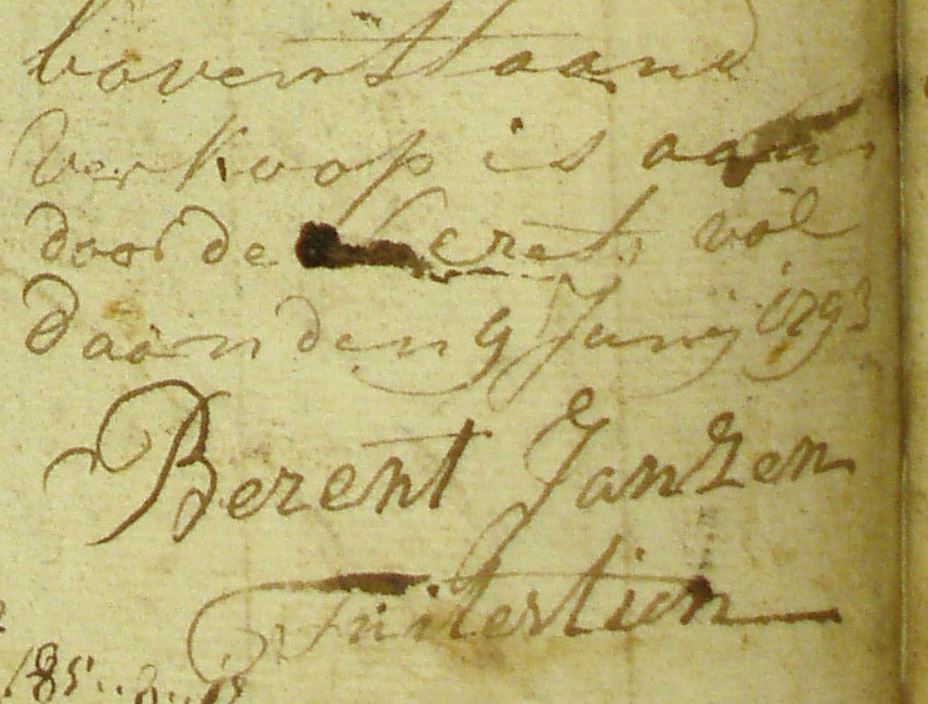 bovenstaand
Verkoop is aan
door de vol
daan den 9 Junij 1793
Berent Janzen
Tuitertien
185